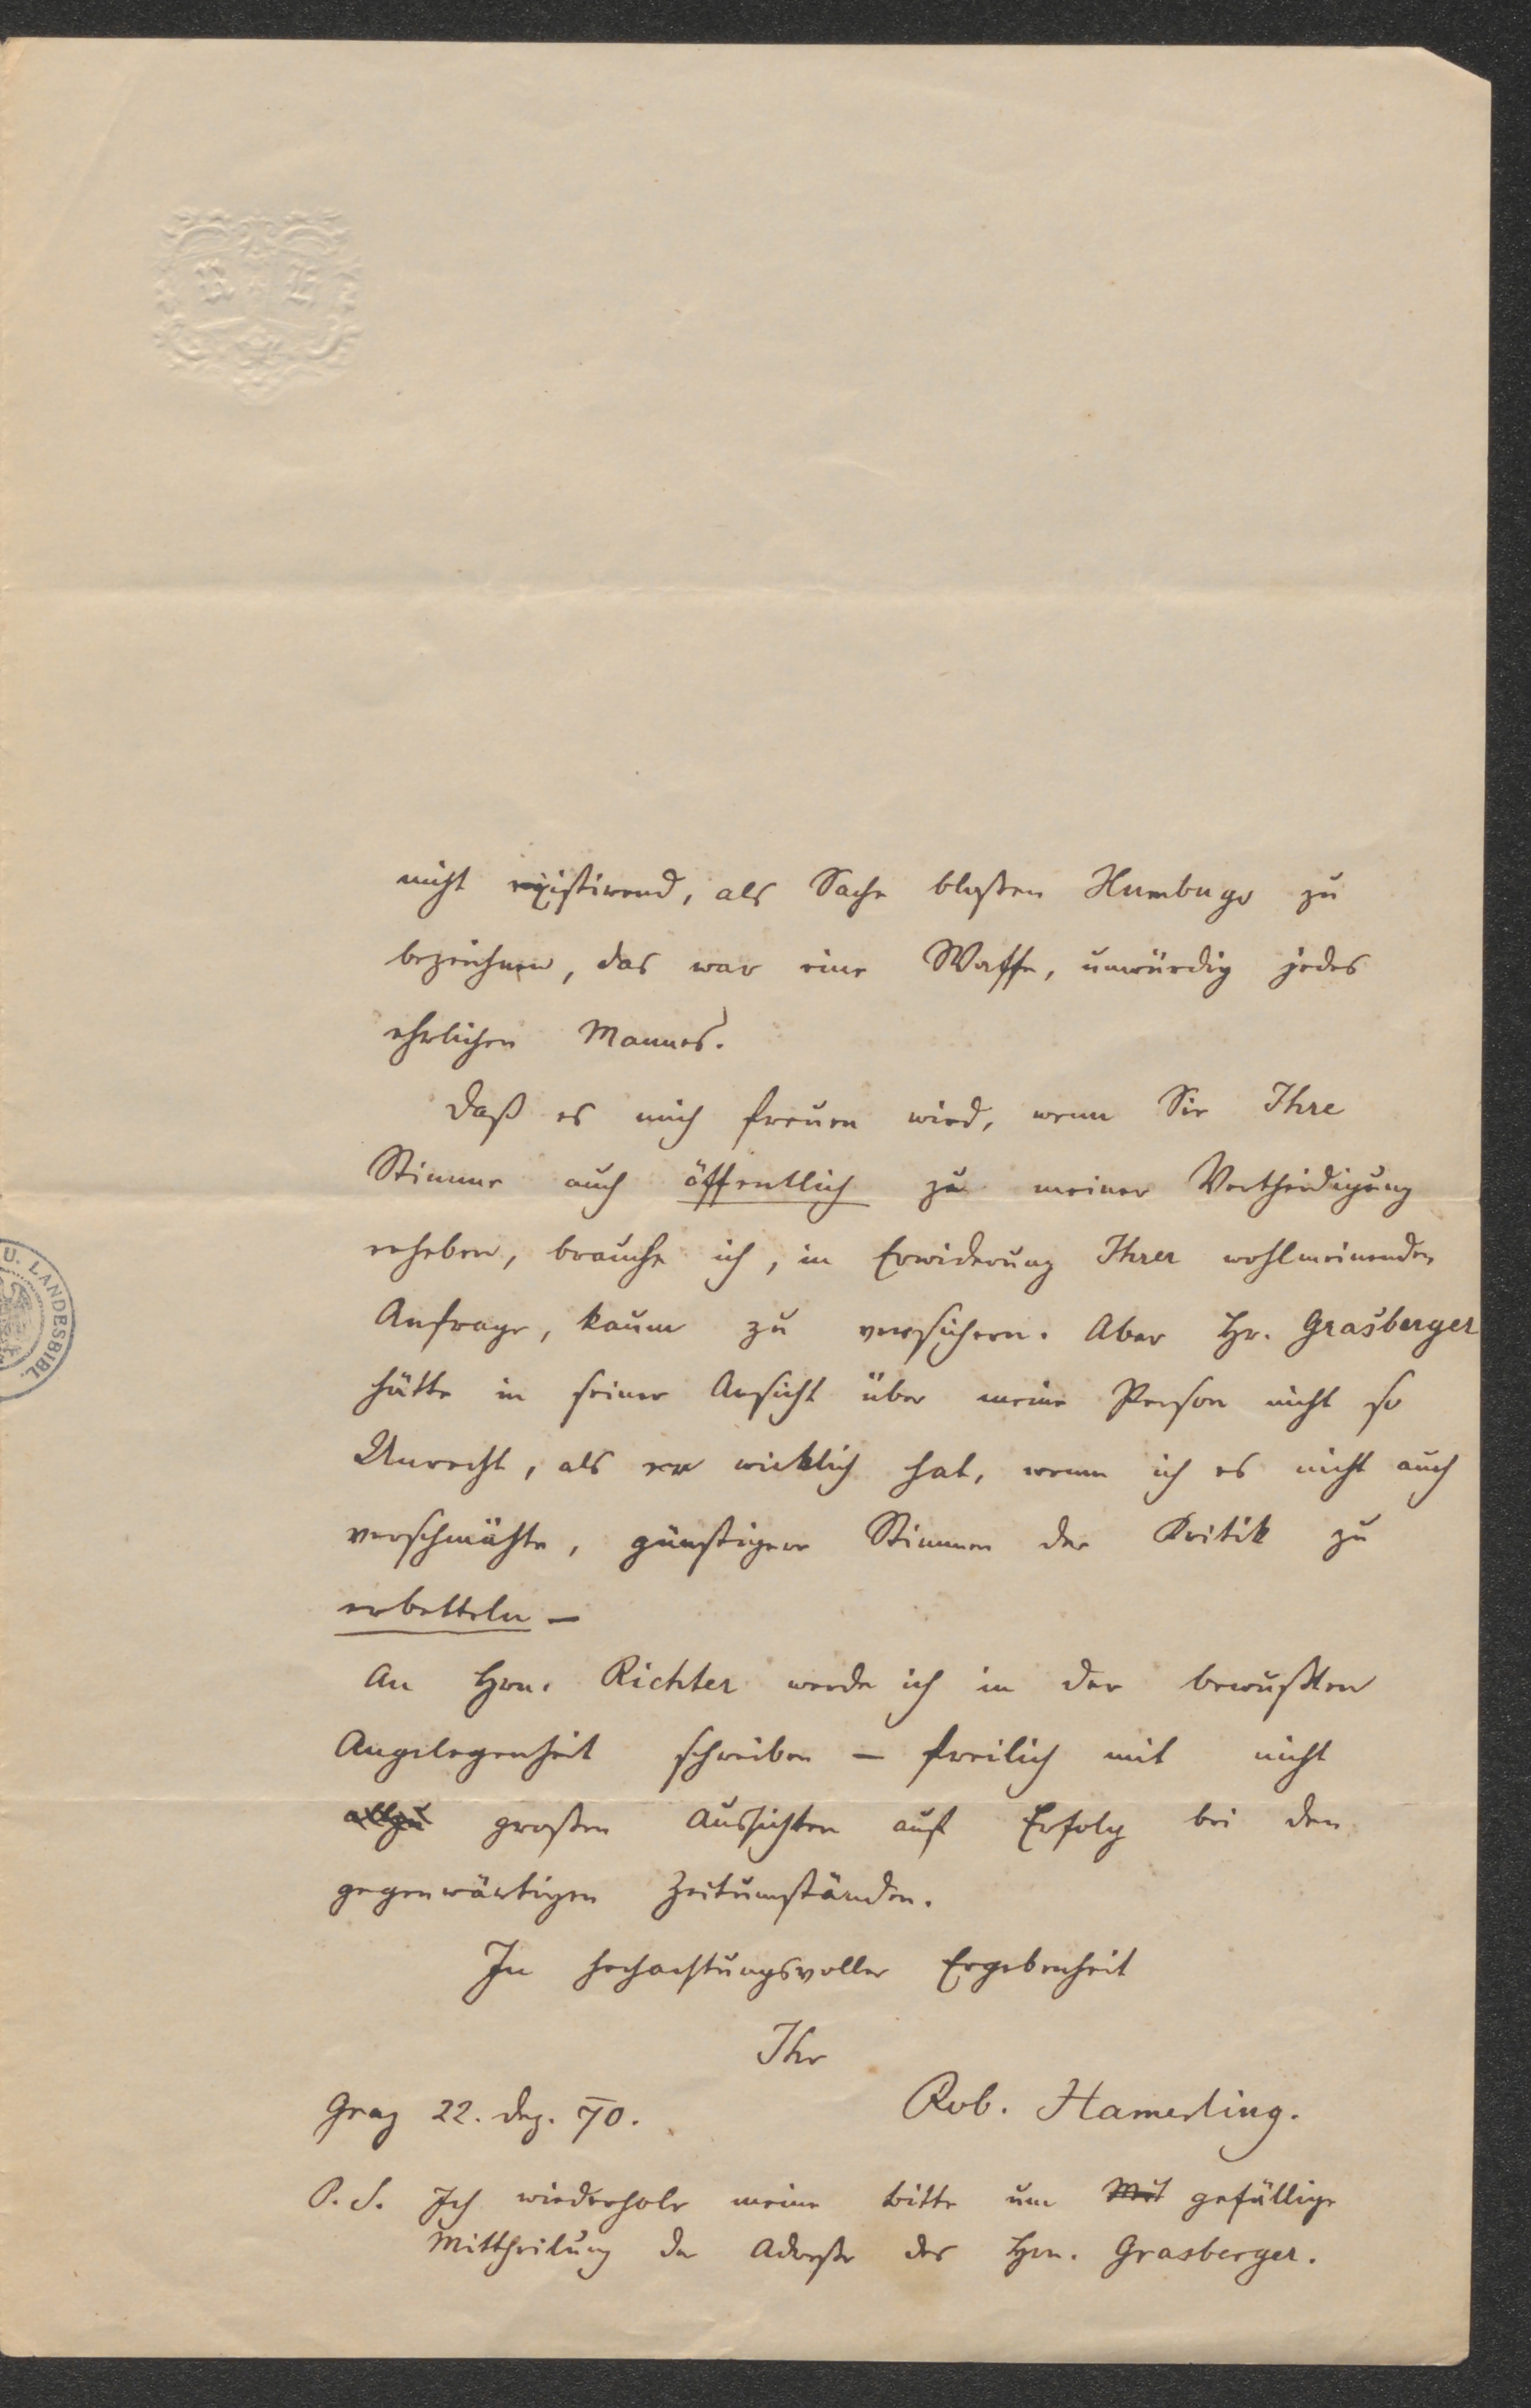 nicht existirend, als Sache bloßen Humbugs zu
bezeichnen, das war eine Waffe, unwürdig jedes
ehrlichen Mannes.
Daß es mich freuen wird, wenn Sie Ihre
Stimme auch öffentlich zu meiner Vertheidigung
erheben, brauche ich, in Erwiderung Ihrer wohlmeinenden
Anfrage, kaum zu versichern. Aber Hr. Grasberger
hätte in seiner Ansicht über meine Person nicht so
Unrecht, als er wirklich hat, wenn ich es nicht auch
verschmähte, günstigere Stimmen der Kritik zu
erbetteln –
An Hrn. Richter werde ich in der bewußten
Angelegenheit schreiben – freilich mit nicht
allzu großen Aussichten auf Erfolg bei den
gegenwärtigen Zeitumständen.
In hochachtungsvoller Ergebenheit
Ihr
Rob. Hamerling.
Graz 22. Dez. 70.
P. S. Ich wiederhole meine Bitte um Mit gefällige
Mittheilung der Adresse des Hrn. Grasberger.
U. LANDESBIBL.